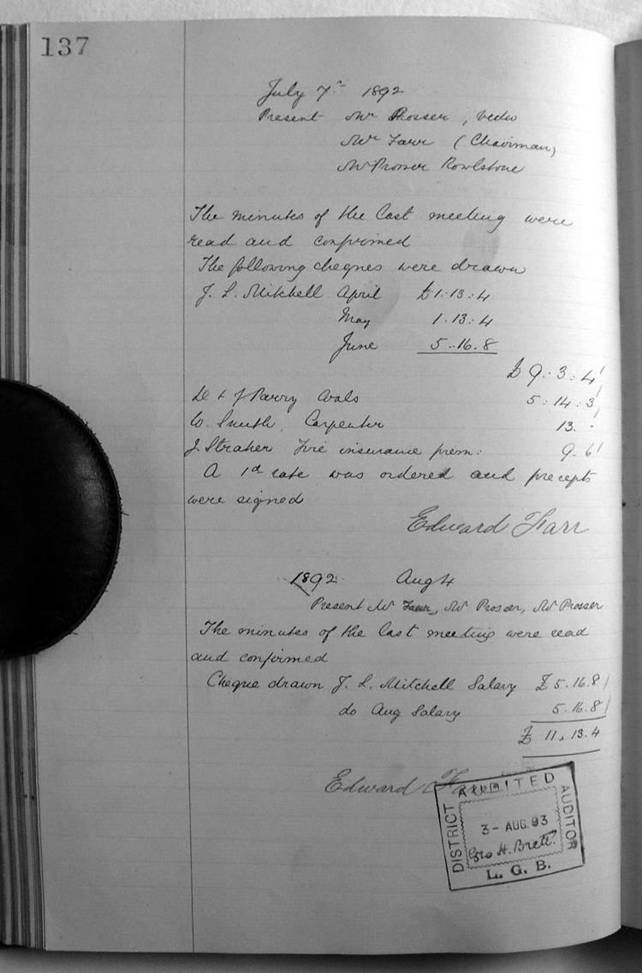 137
July 7th 1892
Present Mr Prosser,
Mr Farr (Chairman,
Mr Prosser Rowlstone
The minutes of the last meeting were
read and confirmed
The following cheques were drawn
J. L. Mitchell April £1:13:4
May 1.13:4
June 5..16.8
£9:3:4
D & J Parry Coals 5:14:3
W. Smith, Carpenter 13. -
J. Straker Fire insurance prem: 9.6
A 1d rate was ordered and precepts
were signed
Edward Farr
1892 Aug 4
Present Mr Farr, Mr Prosser, Mr Prosser
The minutes of the last meeting were read
and confirmed
Cheque drawn J. L. Mitchell Salary £5.16.8
do Aug Salary 5.16.8
£11.13.4
Edward Farr
AUDITED
DISTRICT
3-AUG.93
AUDITOR
Geo H. Brett
L. G. B.